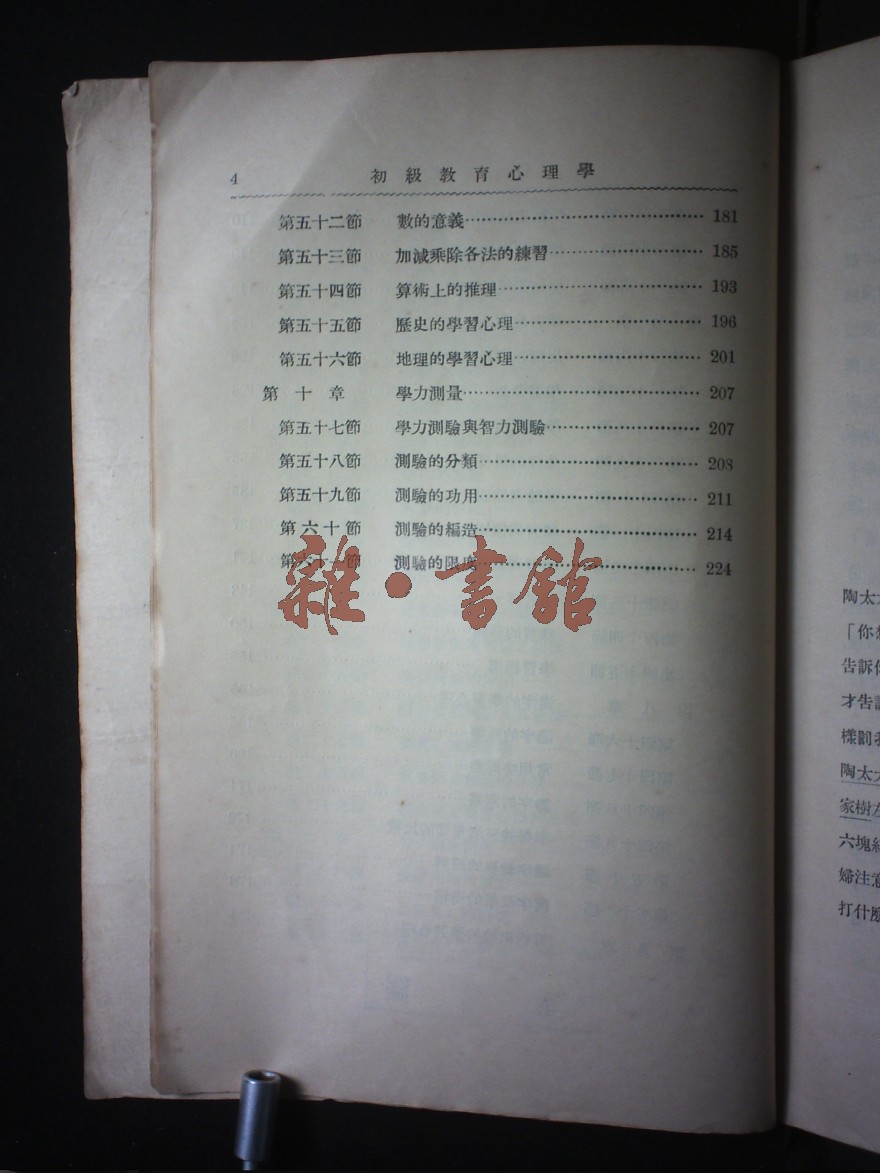 4 初級教育心理學
第五十二節 數的意義 181
第五十三節 加減乘除各法的練習 185
第五十四節 算術上的推理 193
第五十五節 歷史的學習心理 196
第五十六節 地理的學習心理 201
第十章 學力測量 207
第五十七節 學力測驗與智力測驗 207
第五十八節 測驗的分類 208
第五十九節 測驗的功用 211
第六十節 測驗的編造 214
第六十一節 測驗的限度 224
雜·書館
陶太
「你
告訴
才告
樣
陶太
家樹
六塊
婦注意
打什麼